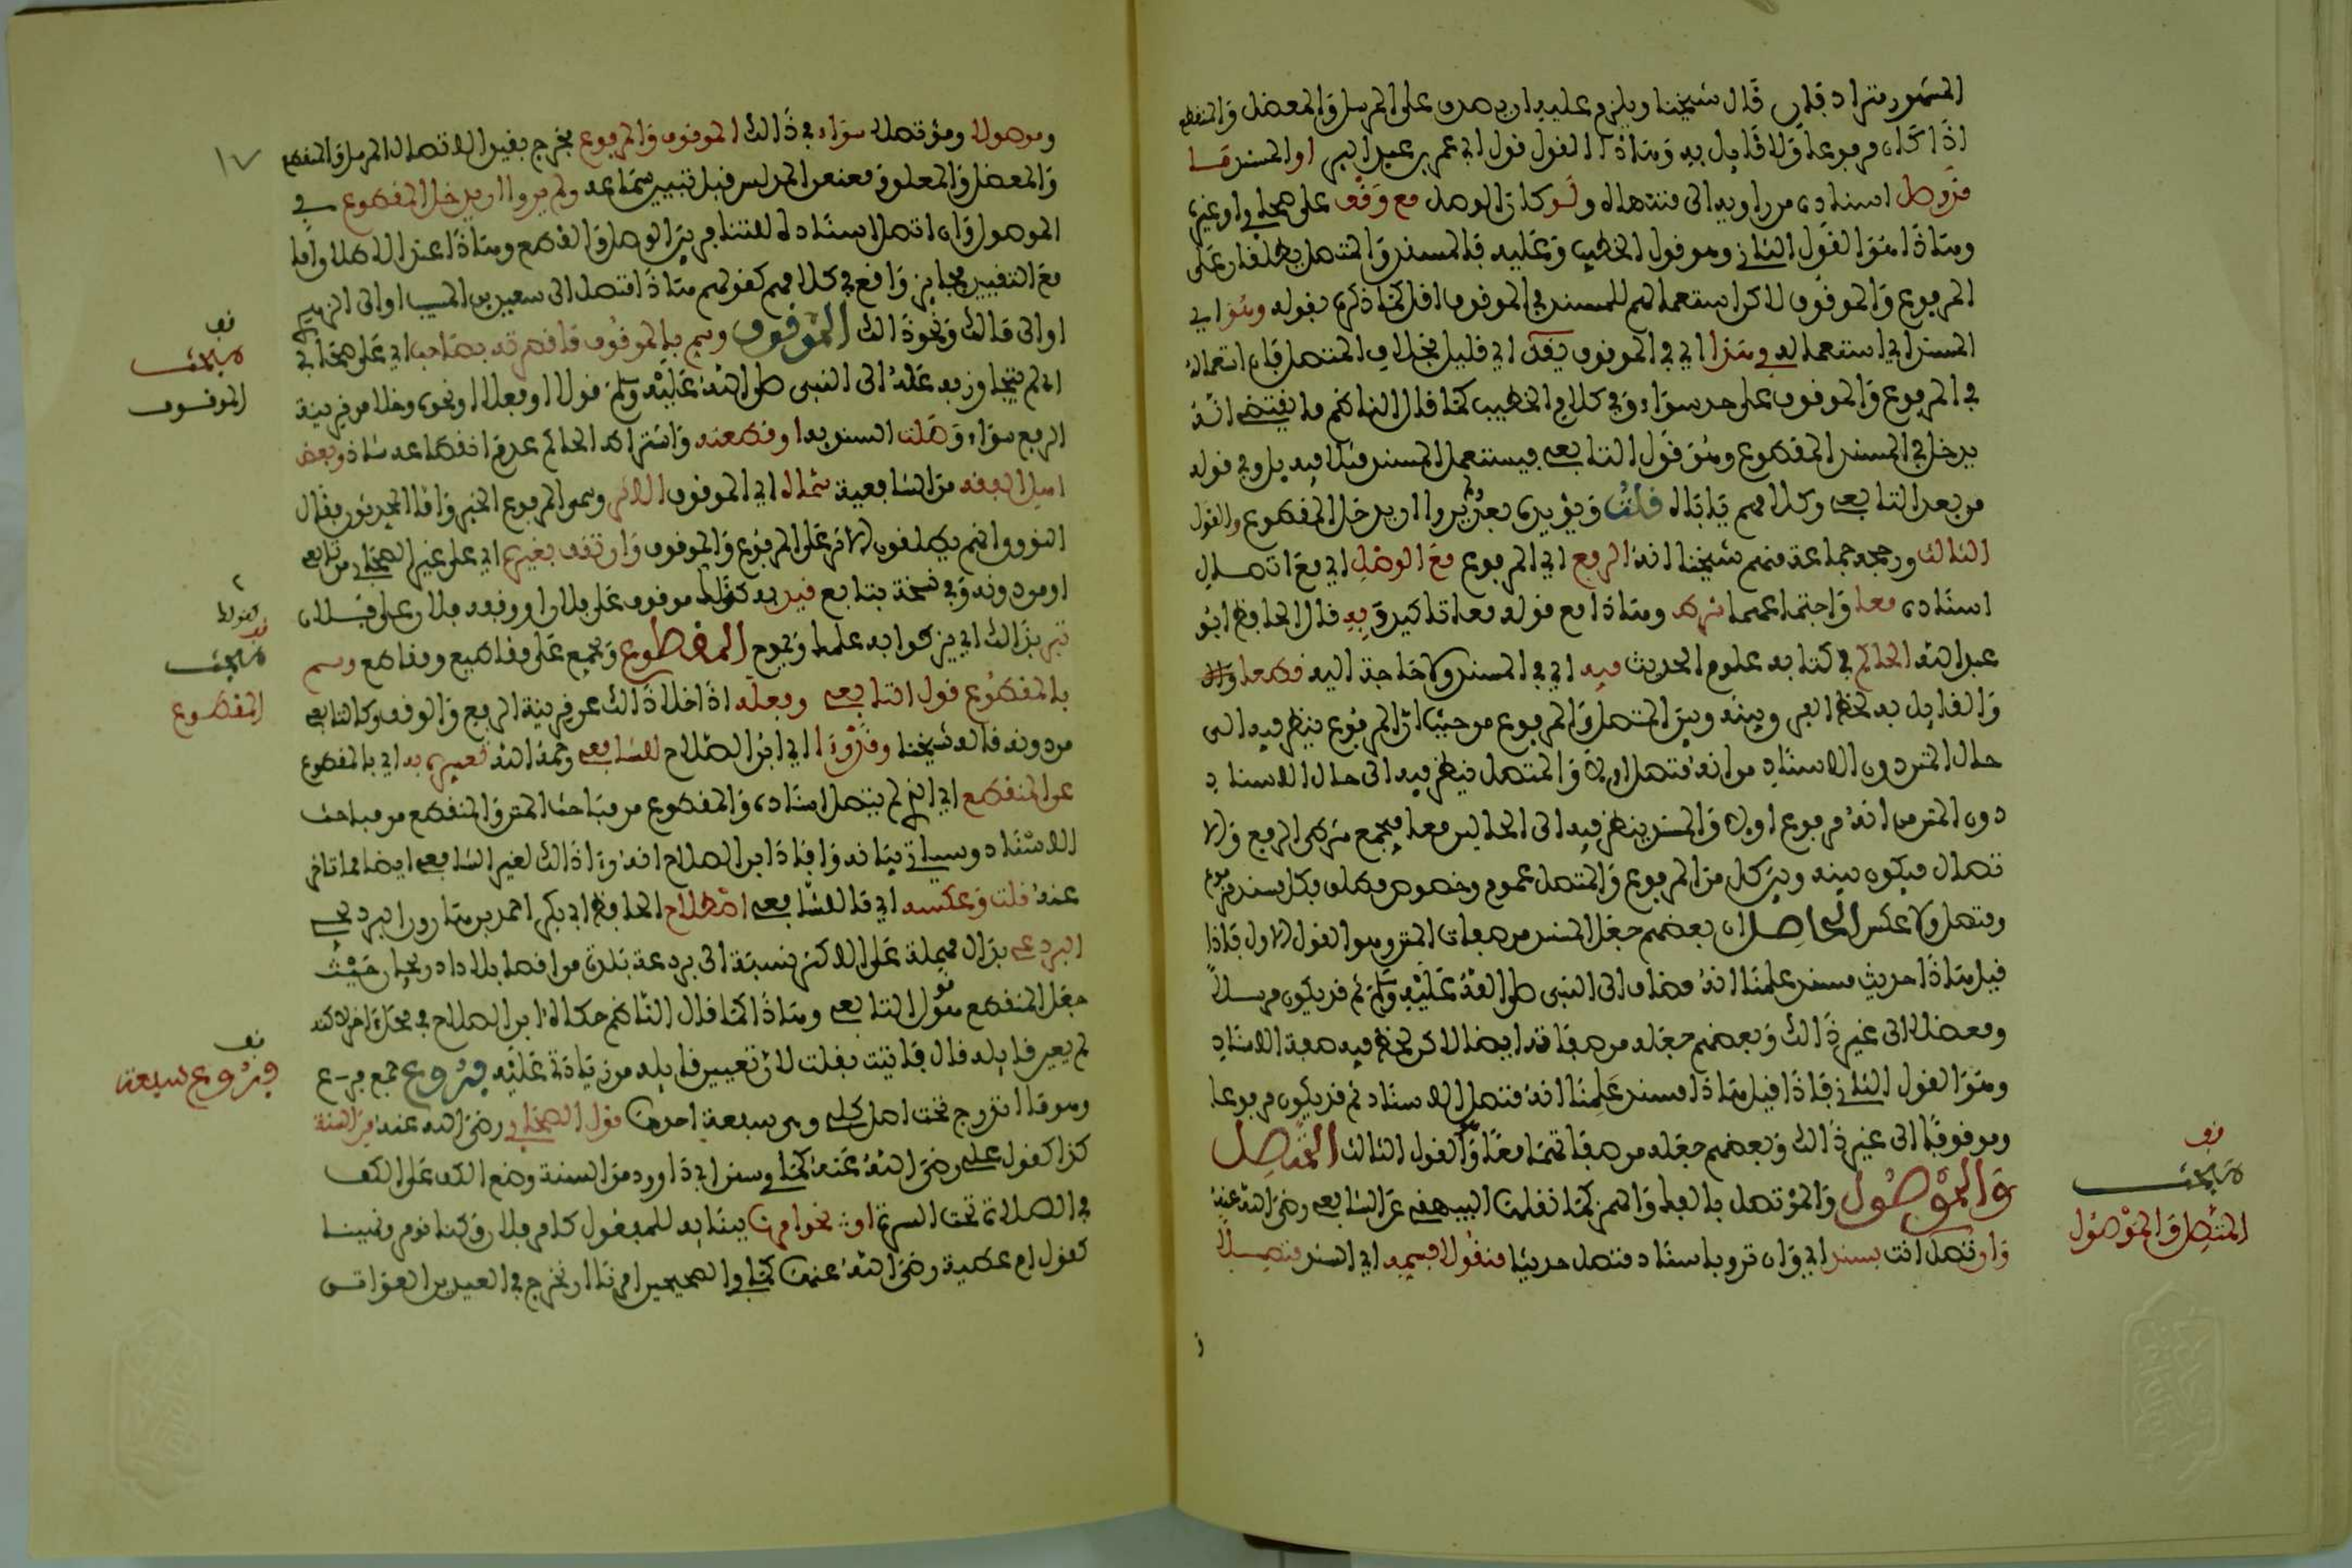 المشهور متراد فان قال شيخنا ويلزم عليه ان يصدق على المرسل والمعضل والمنقطع
اذا كان مرفوعا ولا قايل به وهاذا القول قول ابي عمر بن عبد البر او المسند ما
قد وصل اسناده من راويه الى منتهاه ولو كان الوصل مع وقف على صحابي او غيره
وهاذا هو القول الثاني وهو قول الخطيب وعليه فالمسند والمتصل يطلقان على
المرفوع والموقوف لاكن استعمالهم للمسند في الموقوف اقل كما ذكره بقوله وهو اي
المسند اي استعماله وهذا اي في الموقوف يقل اي قليل بخلاف المتصل فان استعماله
في المرفوع والموقوف على حد سواء وفي كلام الخطيب كما قال الناظم ما يقتضي انه
يدخل في المسند المقطوع وهو قول التابعي فيستعمل المسند فيه بل وفي قوله
من بعد التابعي وكلامهم ياباه قلت ويؤيده بعد ولم يروا ان يدخل المقطوع والقول
الثالث ورجحه جماعة منهم شيخنا انه الرفع اي المرفوع مع الوصل اي مع اتصال
اسناده معا واجتماعهما شرط وهاذا مع قوله معا تاكيد وبه قال الحافظ ابو
عبد الله الحاكم في كتابه علوم الحديث فيه اي في المسند ولا حاجة اليه قطعا
والقايل به لحظ الفرق بينه وبين المتصل والمرفوع من حيث ان المرفوع ينظر فيه الى
حال المتن دون الاسناد من انه متصل او لا والمتصل ينظر فيه الى حال الاسناد
دون المتن من انه مرفوع او لا والمسند ينظر فيه الى الحالين معا فيجمع شرطي الرفع والا
تصال فيكون بينه وبين كل من المرفوع والمتصل عموم وخصوص مطلق فكل مسند مرفوع
ومتصل ولا عكس الحاصل ان بعضهم جعل المسند من صفات المتن وهو القول الاول فاذا
قيل هاذا حديث مسند علمنا انه مضاف الى النبي صلى الله عليه وسلم ثم قد يكون مرسلا
ومعضلا الى غير ذالك وبعضهم جعله من صفاته ايضا لاكن لحظ فيه صفة الاسناد
وهو القول الثاني فاذا قيل هاذا مسند علمنا انه متصل الاسناد ثم قد يكون مرفوعا
وموقوفا الى غير ذالك وبعضهم جعله من صفاتهما معا وهو القول الثالث المتصل
والموصول والمؤتصل بالفك والهمز كما نقلهما البيهقي عن الشافعي رضي الله عنه
وان تصل انت بسند اي وان ترو باسناد متصل حديثا منقولا فسمه اي السند متصلا
نف
مبحث
المتصل والموصول
١٧
وموصولا ومؤتصلا سواء في ذالك الموقوف والمرفوع فخرج بقيد الاتصال المرسل والمنقطع
والمعضل والمعلق ومعنعن المدلس قبل تبيين سماعه ولم يروا ان يدخل المقطوع في
الموصول وان اتصل اسناده لقتنافر بين الوصل والقطع وهاذا عند الاطلاق واما
مع التقييد فجايز واقع في كلامهم كقولهم هاذا متصل الى سعيد بن المسيب او الى الزهري
او الى مالك ونحو ذالك الموقوف وسم بالموقوف ما قصرته بصاحب اي على صحابي
اي لم تتجاوز به عنه الى النبي صلى الله عليه وسلم قولا او فعلا او نحوه وخلا من قرينة
الرفع سواء وصلت السند به او قطعته واشتراط الحاكم عدم انقطاعه شاذ وبعض
اهل الفقه من الشافعية سماه اي الموقوف الاثر وسمى المرفوع الخبر واما المحدثون فقال
النووي انهم يطلقون الاثر على المرفوع والموقوف وان تقف بغيره اي على غير الصحابي من تابعي
او من دونه وفي نسخة بتابع قيد به كقولك موقوف على فلان او وقفه فلان على فلان
تبر بذالك اي يزكوا به علمك ويجود المقطوع ويجمع على مقاطيع ومقاطع وسم
بالمقطوع قول التابعي وفعله اذا خلا ذالك عن قرينة الرفع والوقف وكالتابعي
من دونه قاله شيخنا وقد رءا اي ابن الصلاح للشافعي رحمه الله تعبيره به اي بالمقطوع
عن المنقطع اي الذي لم يتصل اسناده والمقطوع من مباحث المتن والمنقطع من مباحث
الاسناد وسياتي بيانه وافاد ابن الصلاح انه رءا ذالك لغير الشافعي ايضا مما تاخر
عنه قلت وعكسه اي قال الشافعي اصطلاح الحافظ ابي بكر احمد بن هارون البرديجي
البردعي بدال مهملة على الاكثر نسبة الى بردعة بلدة من اقصا بلاد اذربيجان حيث
جعل المنقطع هو قول التابعي وهاذا كما قال الناظم حكاه ابن الصلاح في محل اخر لاكنه
لم يعين قايله قال فاتيت بقلت لان تعيين قايله من زيادة عليه فروع جمع فرع
وهو ما اندرج تحت اصل كلي وهي سبعة احدها قول الصحابي رضي الله عنه من السنة
كذا كقول علي رضي الله عنه كما في سنن ابي داود من السنة وضع الكف على الكف
في الصلاة تحت السرة او نحو امرنا ببنائه للمفعول كامر فلان وكنا نومر ونهينا
كقول ام عطية رضي الله عنها كما في الصحيحين امرنا ان نخرج في العيدين العواتق
نف
مبحث
الموقوف
نف
مبحث
المقطوع
نف
فروع سبعة